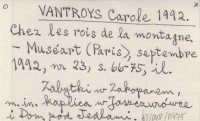 VANTROYS Carole 1992.
Chez les rois de la montagne.
- Muséart (Paris), septembre
1992, nr 23, s. 66-75, il.
Zabytki w Zakopanem,
m.in. kaplica w Jaszczurówce
i Dom pod Jedlami.